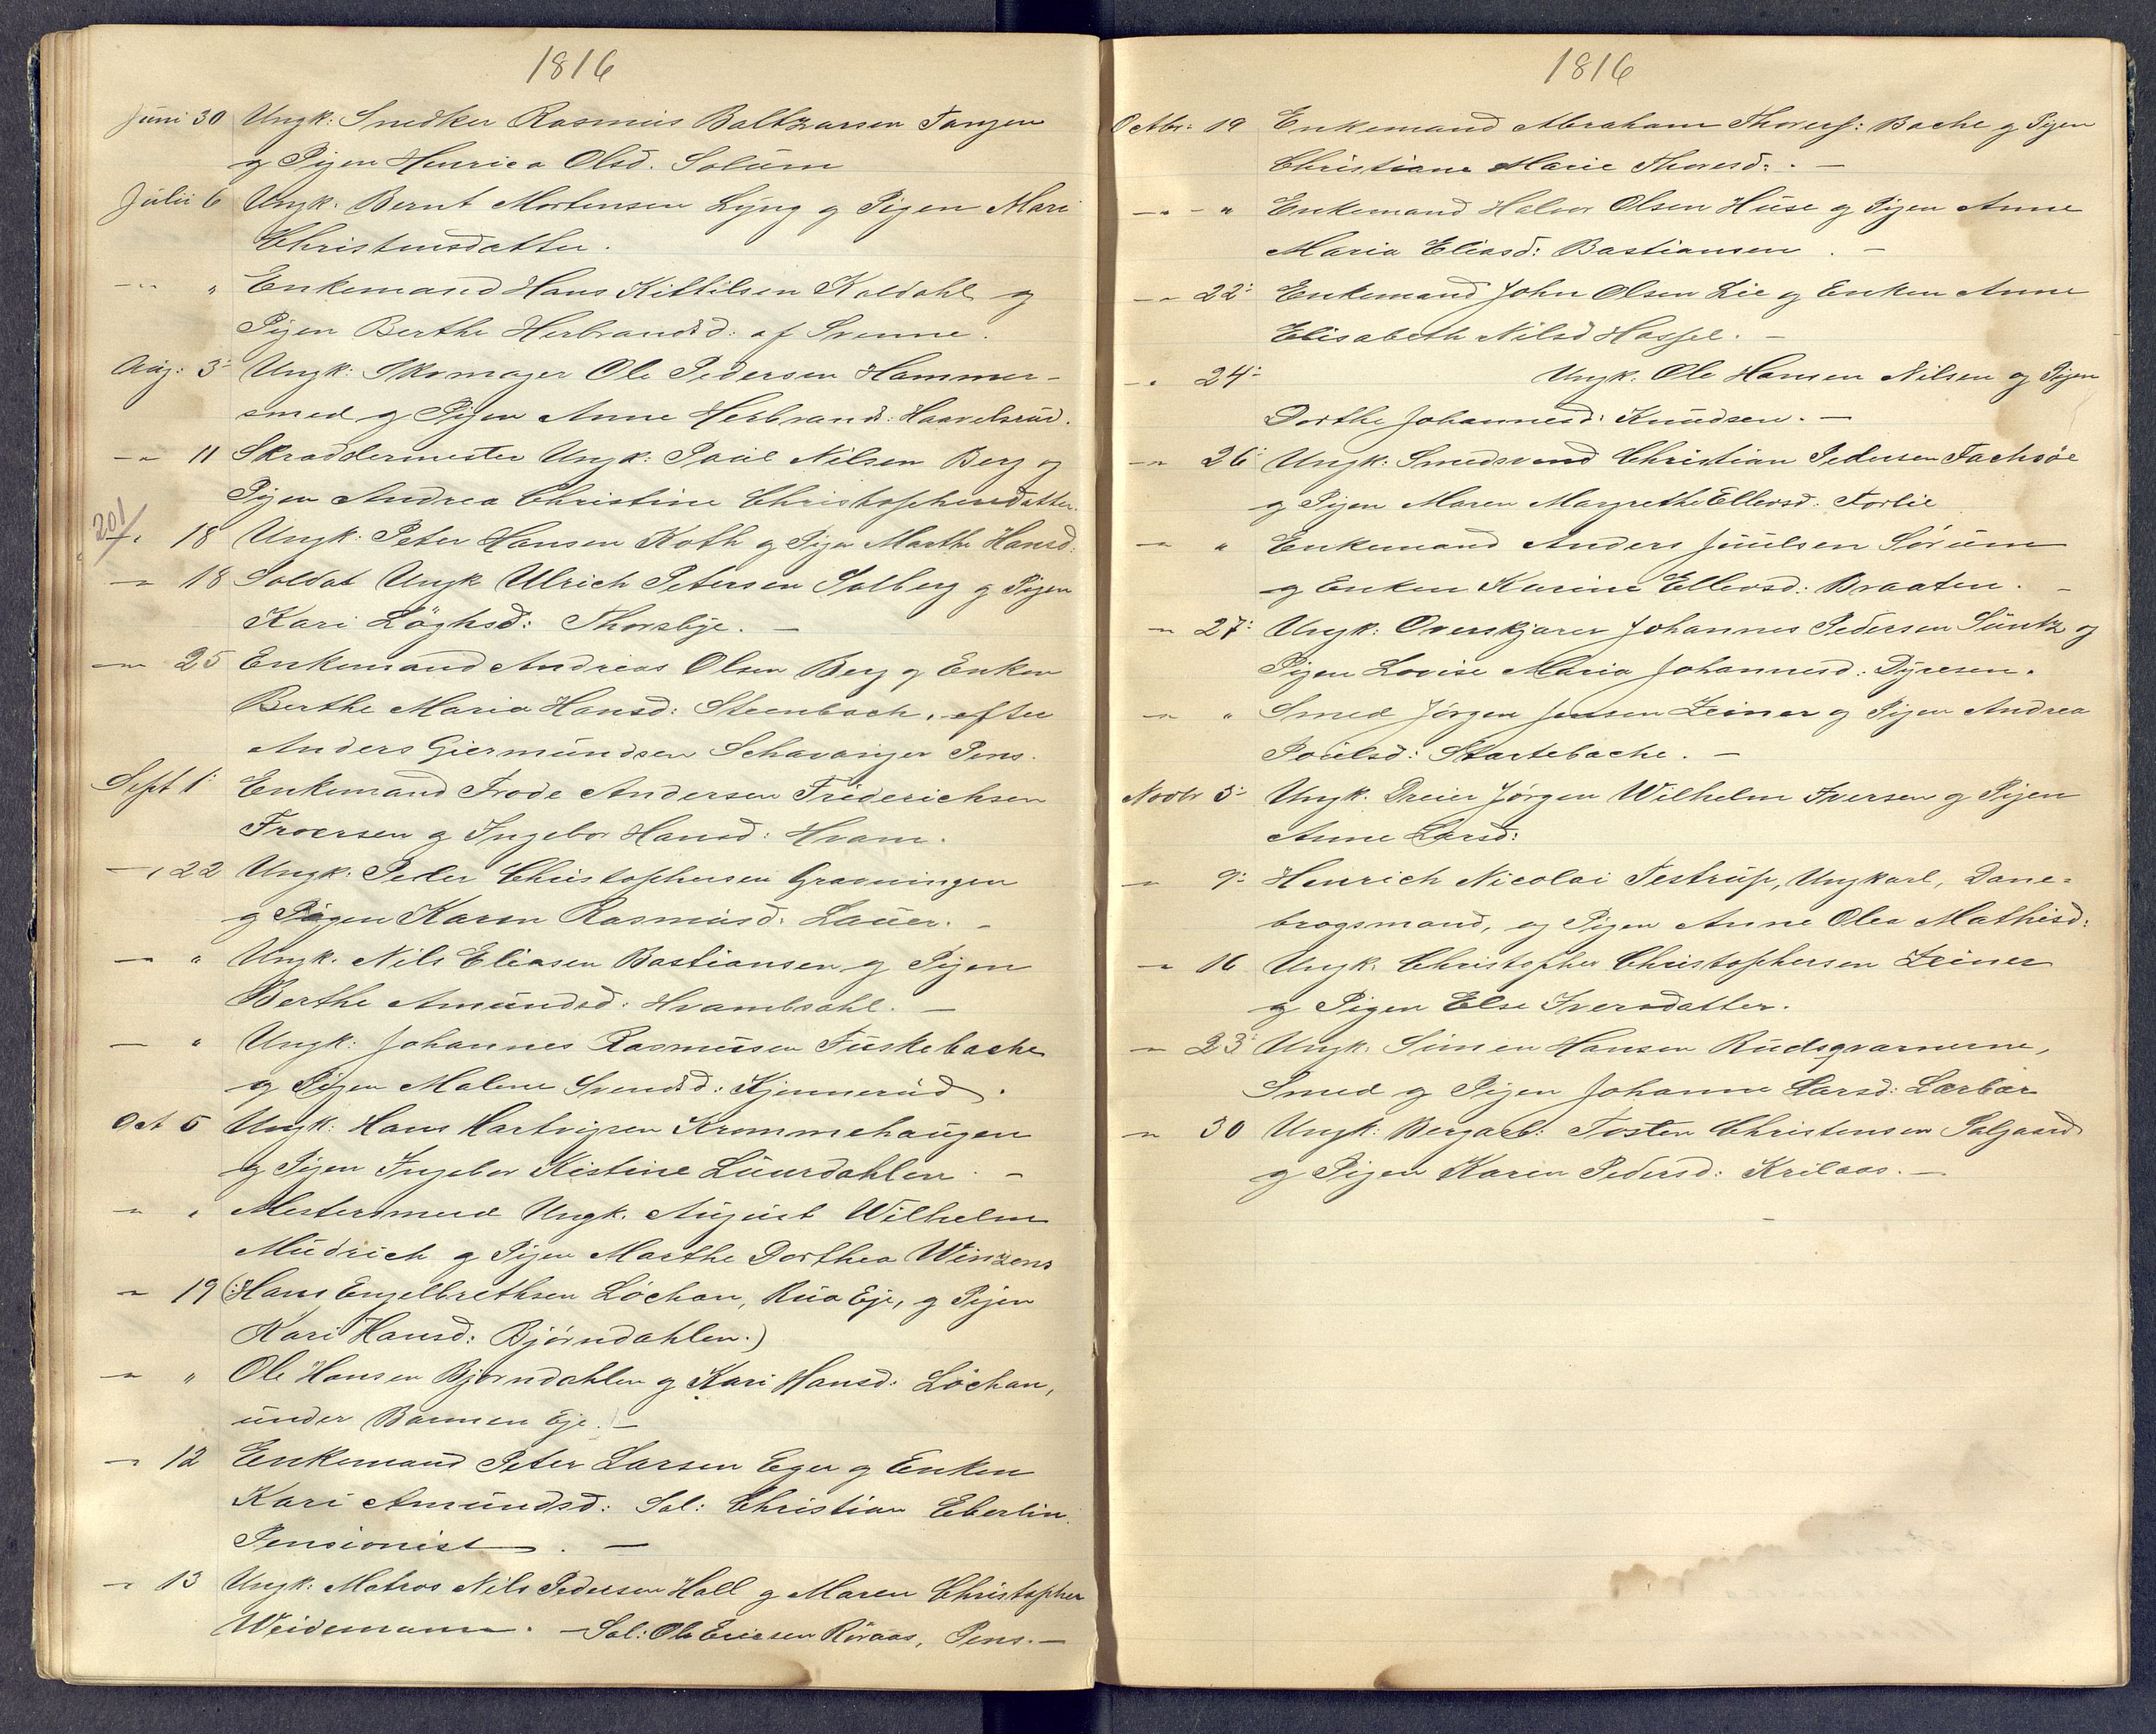 1816
Juni 30 Ungk: Snedker Rasmus Baltzarsen Tangen
og Pigen Henrica Olsd. Solum
Julii 6 Ungk. Bernt Mortensen Lyng og Pigen Mari
Christensdatter.
— " Enkemand Hans Kittilsen Koldahl og
Pigen Berthe Herbrandsd: af Svenne.
Aug: 3: Ungk: Skomager Ole Pedersen Hammer-
smed og Pigen Anne Herbrands: Haavelsrud.
— 11 Skraddermester Ungk: Paul Nilsen Berg og
Pigen Andrea Christine Christophersdatter.
201/ " 18 Ungk: Peter Hansen Roth og Pigen Marthe Hansd:
— 18 Soldat Ungk Ulrich Petersen Solberg og Pigen
Kari Löghsd: Thorsbye. —
— 25 Enkemand Andreas Olsen Berg og Enken
Berthe Maria Hansd: Steenbach, efter
Anders Giermundsen Schavanger Pens.
Sept 1: Enkemand Frode Andersen Friderichsen
Froersen og Ingebor Hansd: Hvam.
— 22 Ungk. Peder Christophersen Gravningen
og Pigen Karen Rasmusd: Lauer. —
— " Ungk. Nils Eliasen Bastiansen og Pigen
Berthe Amundsd: Hvambsahl. —
— " Ungk: Johannes Rasmusen Fuskebache
og Pigen Malene Svendsd: Kjennerud.
Oct 5 Ungk: Hans Hartvigsen Krommehaugen
og Pigen Ingebor Kistine Luurdahlen. —
— " Mestersmed Ungk. August Wilhelm
Mudrich og Pigen Marthe Dorthea Winzens
— 19 (: Hans Engelbrethsen Löchan, Rua Eje, og Pigen
Kari Hansd: Bjørndahlen.)
— " Ole Hansen Bjørndahlen og Kari Hansd: Löchan,
under Bannen Eje. —
— 12 Enkemand Peter Larsen Eger og Enken
Kari Amundsd: Sal: Christian Eberlin.
Pensionist. —
— 13 Ungk: Matros Nils Pedersen Hall og Maren Christopher
Weidemann. — Sal: Ole Ericsen Röraas, Pens. —
1816
Octbr: 19 Enkemand Abraham Thoresf: Bache og Pigen
Christiane Marie Thoresd: —
— " Enkemand Halvor Olsen Huse og Pigen Anne
Maria Eliasd: Bastiansen. —
— 22: Enkemand John Olsen Lie og Enken Anne
Elisabeth Nilsd Hassel. —
— 24: Ungk. Ole Hansen Nilsen og Pigen
Dorthe Johannesd: Knudsen. —
— 26: Ungk: Smedsvend Christian Pedersen Fachsöe
og Pigen Maren Margrethe Ellevsd: Forlie
— " Enkemand Anders Juulsen Sörum
og Enken Karine Ellevsd: Braaten. —
— 27: Ungk: Overskjærer Johannes Pedersen Suntz og
Pigen Lovise Maria Johannesd: Dyresen.
— " Smed Jörgen Jensen Zeiner og Pigen Andrea
Poulsd: Startebache. —
Novbr 3: Ungk. Dreier Jörgen Wilhelm Iversen og Pigen
Anne Larsd:
— 9: Henrich Nicolai Testrup, Ungkarl, Dane-
brogsmand, og Pigen Anne Olea Mathisd:
— 16 Ungk. Christopher Christophersen Zeiner
og Pigen Else Iversdatter.
— 23: Ungk. Simen Hansen Rudsqvarnerne,
Smed og Pigen Johanne Larsd: Larbar
— 30 Ungk: Bergarb: Tosten Christensen Salgaard
og Pigen Karen Pedersd: Krilaas. —